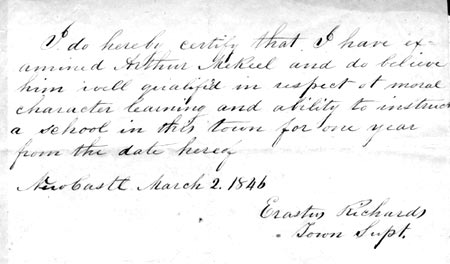 I do hereby certify that I have ex-
amined Arthur Mekeel and do believe
him well qualifid in respect of moral
character learning and ability to instruct
a school in this town for one year
from the date hereof
New Castl March 2. 1846
Erastus Richards
Town Supt.